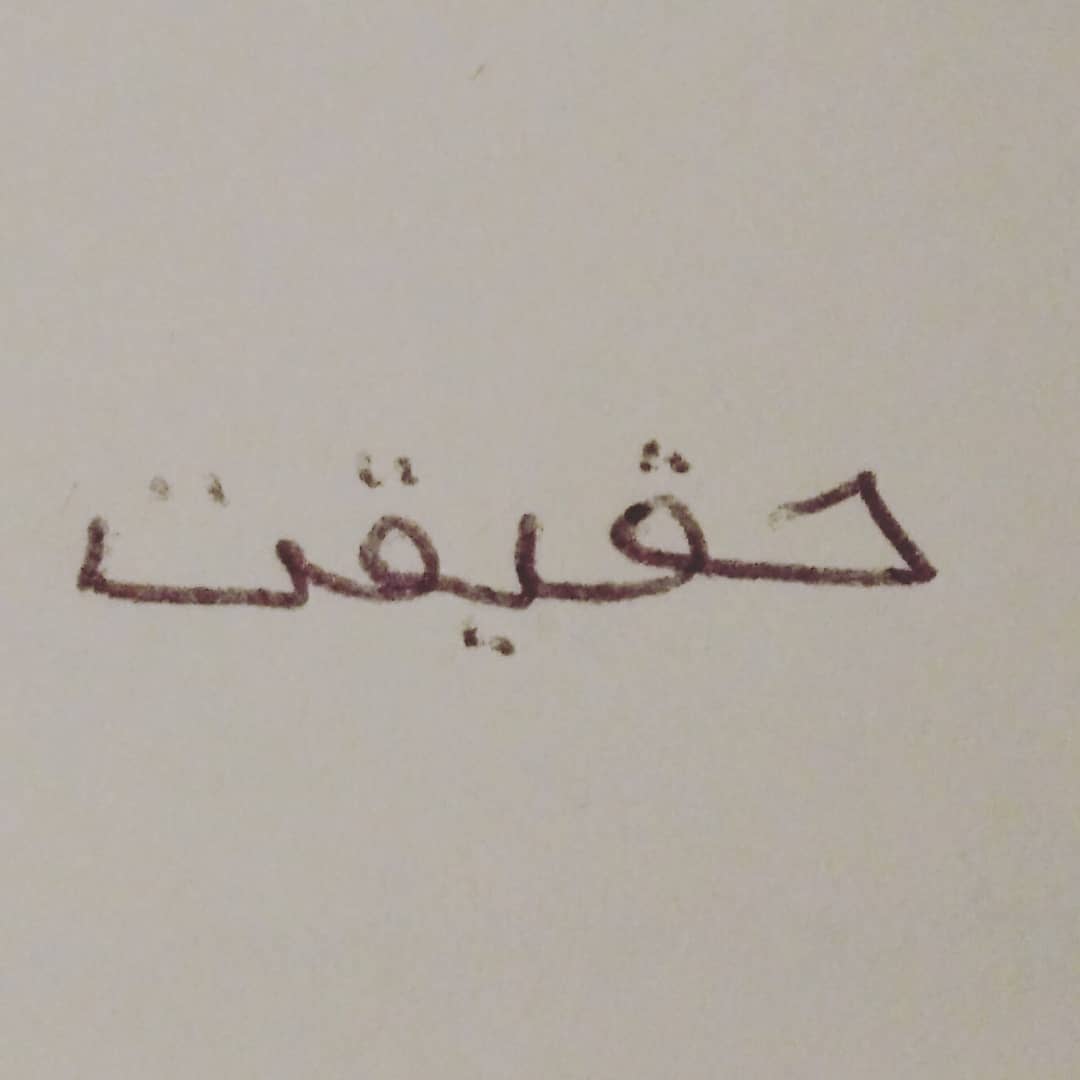 حقيقت